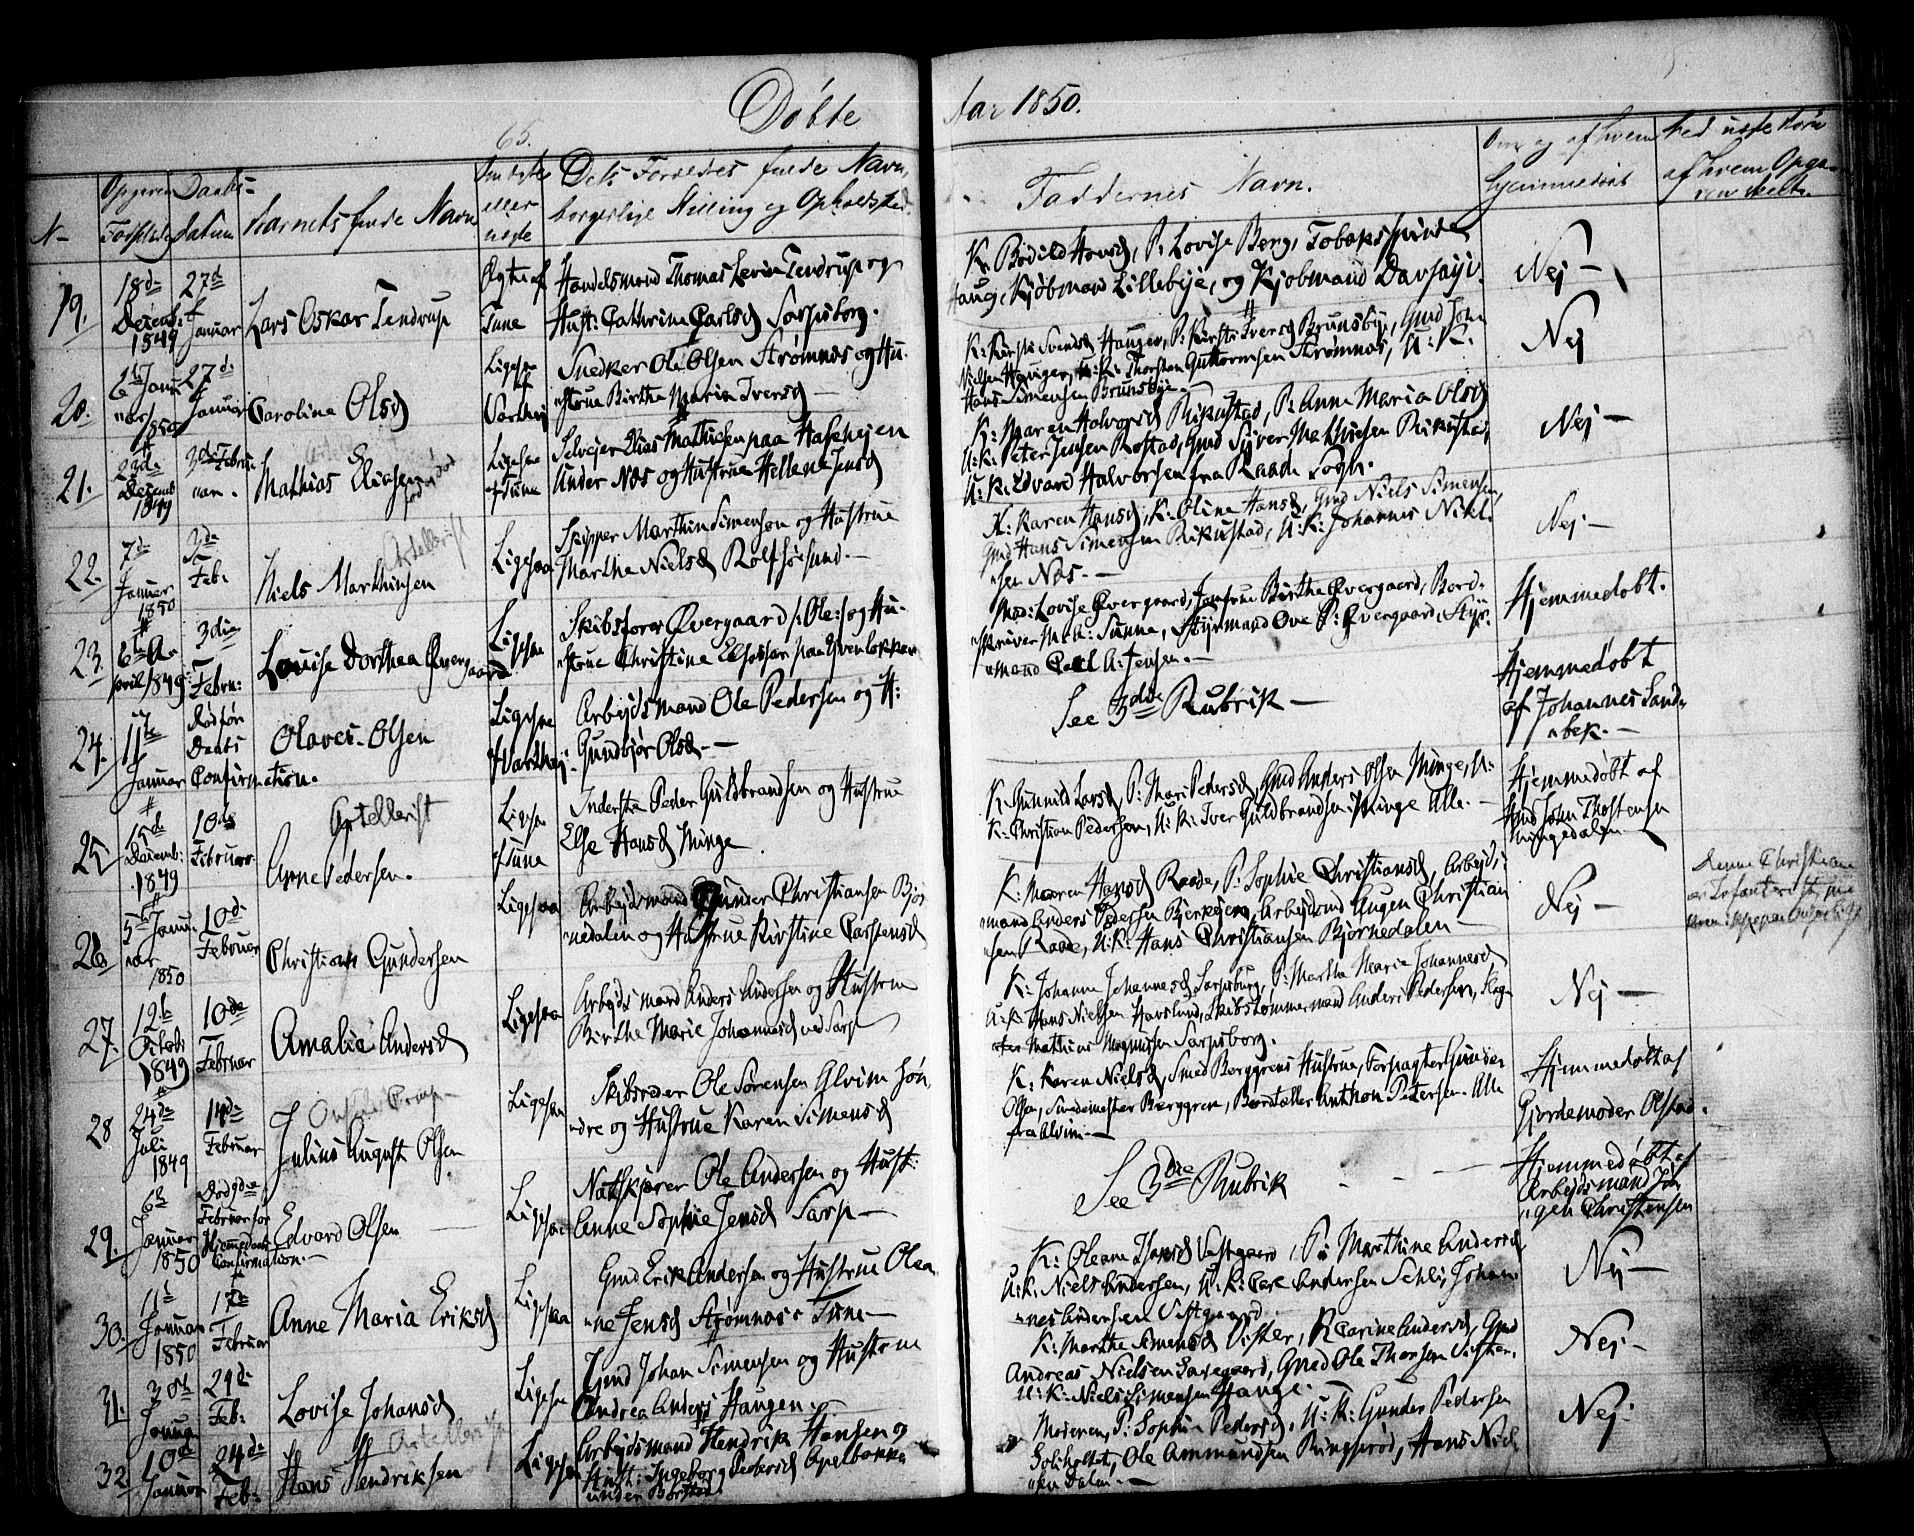 65.
Døbte Aar 1850.
N–
Daabs-
datum
Barnets fulde Navn
eller
uægte
Dets Forældres fulde Navn,
borgerlige Stilling og Opholdsted.
Faddernes Navn.
Om og af hvem
hjemmedøbt
19.
18de
Decemb:
1849
27de
Januar
Lars Oskar Tendrup
Ægte af
Tune
Handelsmand Thomas Levin Tendrup og
Hust: Cathrine Carlsd Sarpsborg.
K. Bodild Hansd, P. Lovise Berg, Tobaksspinder
Haug, Kjøbmand Lillebye, og Kjøbmand Davsøyr.
Nej –
20.
6te Janu
uar
1850
27de
Januar
Caroline Olsd
Ligesaa
Snedker Ole Olsen Strømnes og Hu-
strue Birthe Maria Iversd –
Nielsen Hauger, U:K: Thorsten Guttormsen Strømnes, U:K.
Hans Simensen Brunsbye. –
Nej
21.
23de
Decemb
1849
3die Febru
uar.
Mathias Eliasen
Ligesaa
Tune
Selvejer Elias Mathiesen paa Hafslujen
under Næs og Hustrue Hellene Jensd
K: Maren Halvorsd Rikustad, P: Anne Maria Olsd
U:K: Peter Jensen Rostad, Gmd Syver Mathiesen Rikustad,
U:K: Edvard Halvorsen fra Raade Sogn.
Nej –
22.
7de
Januar
1850
3die
Feb:
Artellerist
Niels Marthinsen
Ligesaa
Skipper Marthin Simensen og Hustrue
Marthe Nielsd Rolfsøesund. –
K: Karen Hansd, K: Oline Hansd, Gmd Niels Simensen,
Gmd Hans Simensen Rikustad, U:K: Johannes Nikl-
sen Næs. –
Nej –
23.
6te A-
pril 1849
3die
Febru:
Louise Dorthea Øvergaard
Ligesaa
Skibsfører Øvergaard /: Ole :/ og Hu-
strue Christine
Mad: Lovise Øvergaard, Jomfrue Birthe Øvergaard, Bord-
skriver M. A: Sunne, Styrmand Ove P: Øvergaard, Styr-
mand Carl A: Jensen. –
Hjemmedøbt.
24.
11te
Januar
Daabs
Confirmation.
Olaves Olsen
Ligesaa
Arbejdsmand Ole Pedersen og H:
Gundbjør Olsd. –
See 3die Rubrik –
Hjemmedøbt
af Johannes Sand-
bek. –
25
15de
Decemb:
1849
10de
Februar
Artellerist
Arne Pedersen.
Ligesaa
Tune
Inderste Peder Guldbrandsen og Hustrue
Else Hansd Minge
K. Gunnild Larsd, P: Mari Pedersd, Gmd Anders Olsen Minge, U:
K: Christian Pedersen, U:K: Iver Guldbrandsen Minge Alle. –
Hjemmedøbt af
Gmd John Thostensen
Mingedalen. –
26
5te Janu-
uar
1850
10de
Februar
Christian Gundersen
Ligesaa
Arbejdsmand Gunder Christiansen Bjør
nedalen og Hustrue Kirstine Carstensd
K: Maren Hansd Raade, P: Sophie Christiansd, Arbejds-
mand Anders Pedersen Bjerkejern, Arbejdsmd Augen Christian
sen Raade, U:K: Hans Christiansen Bjørnedalen –
Nej –
Denne Christian
27.
12te
Octob:
1849
10de
Februar
Amalie Andersd
Ligesaa
Arbejdsmand Anders Andersen og Hustrue
Birthe Marie Johannesd ved Sarp
K: Johanne Johannesd Sarpsborg, P: Martha Marie Johannesd
U:K: Hans Nielsen Havslund, Skibstømmermand Anders Pedersen, Slag-
ter Mathias Magnussen Sarpsborg.
Nej –
28
24de
Juli
1849
14de
Februar
Julius August Olsen
Ligesaa
Skibsreder Ole Sørensen Alvim Søn
dre og Hustrue Karen Simensd
K: Karen Nielsd, Smed Berggrens Hustrue, Forpagter Gunder
Olsen, Smedemester Berggren, Bordtæller Anthon Petersen. Alle
fra Alvim. –
Hjemmedøbt af
Gjordemoder Olstad.
29.
6te
Januar
1850
Februar for
Hjemmedaabs
Confirmation. –
Edvard Olsen
Ligesaa
Ole Andersen og Hust:
Anne Sophie Jensd Sarp –
See 3die Rubrik
Hjemmedøbt af
Arbejdsmand Jør-
gen Christensen
30.
11te
Januar
1850
17de
Februar
Anne Maria Eriksd
Ligesaa
Gmd Erik Andersen og Hustrue Olea
ne Jensd Strømnes Tune –
K: Oleane Hansd Vistgaard, P: Marthine Andersd
U:K: Niels Andersen, U:K: Carl Andersen Sehli, Johan-
nes Andersen Vistgaard
Nej –
31.
30te
Janua
29de
Feb:
Lovise Johansd
Ligesaa
Gmd Johan Simensen og Hustrue
Andrea Andersd Haugen –
K: Marthe Simensd Vister, P: Carine Andersd, Gmd
Andreas Nielsen, Gmd Ole Thorsen Vister.
U:K: Niels Simensen Hauge.
Nej –
32
10de
Januar
24de
Feb:
Artellerist
Hans Hendriksen
Ligesaa
Arbejdsmand Hendrik Hansen og
Hust: Ingeborg Pedersd Apelbakke
under Borstad
Moderen, P: Sophie Pedersd, U:K: Gunder Pedersen
Solholtet, Ole Ammundsen Ringsrød, Hans Niel
sen Dalen. –
Nej: